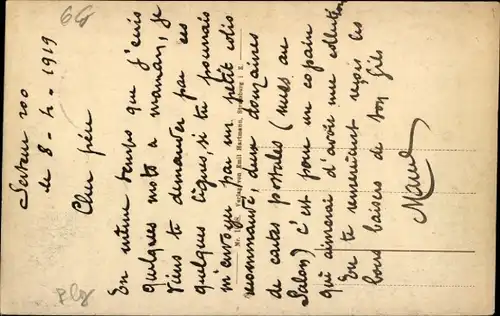 Secteur 200
le 8-4-1919
Cher père
En même temps que j'écris
quelques mots a maman, je
viens te demander par ces
quelques lignes, si tu pourrais
m'envoyer par un petit colis
recommandé, deux douzaines
de cartes postales (nues au
Salon) c'est pour un copain
qui aimerai d'avoir une collection
En te remerciant reçois les
bons baisers de ton fils
Verlag von Emil Hartmann,